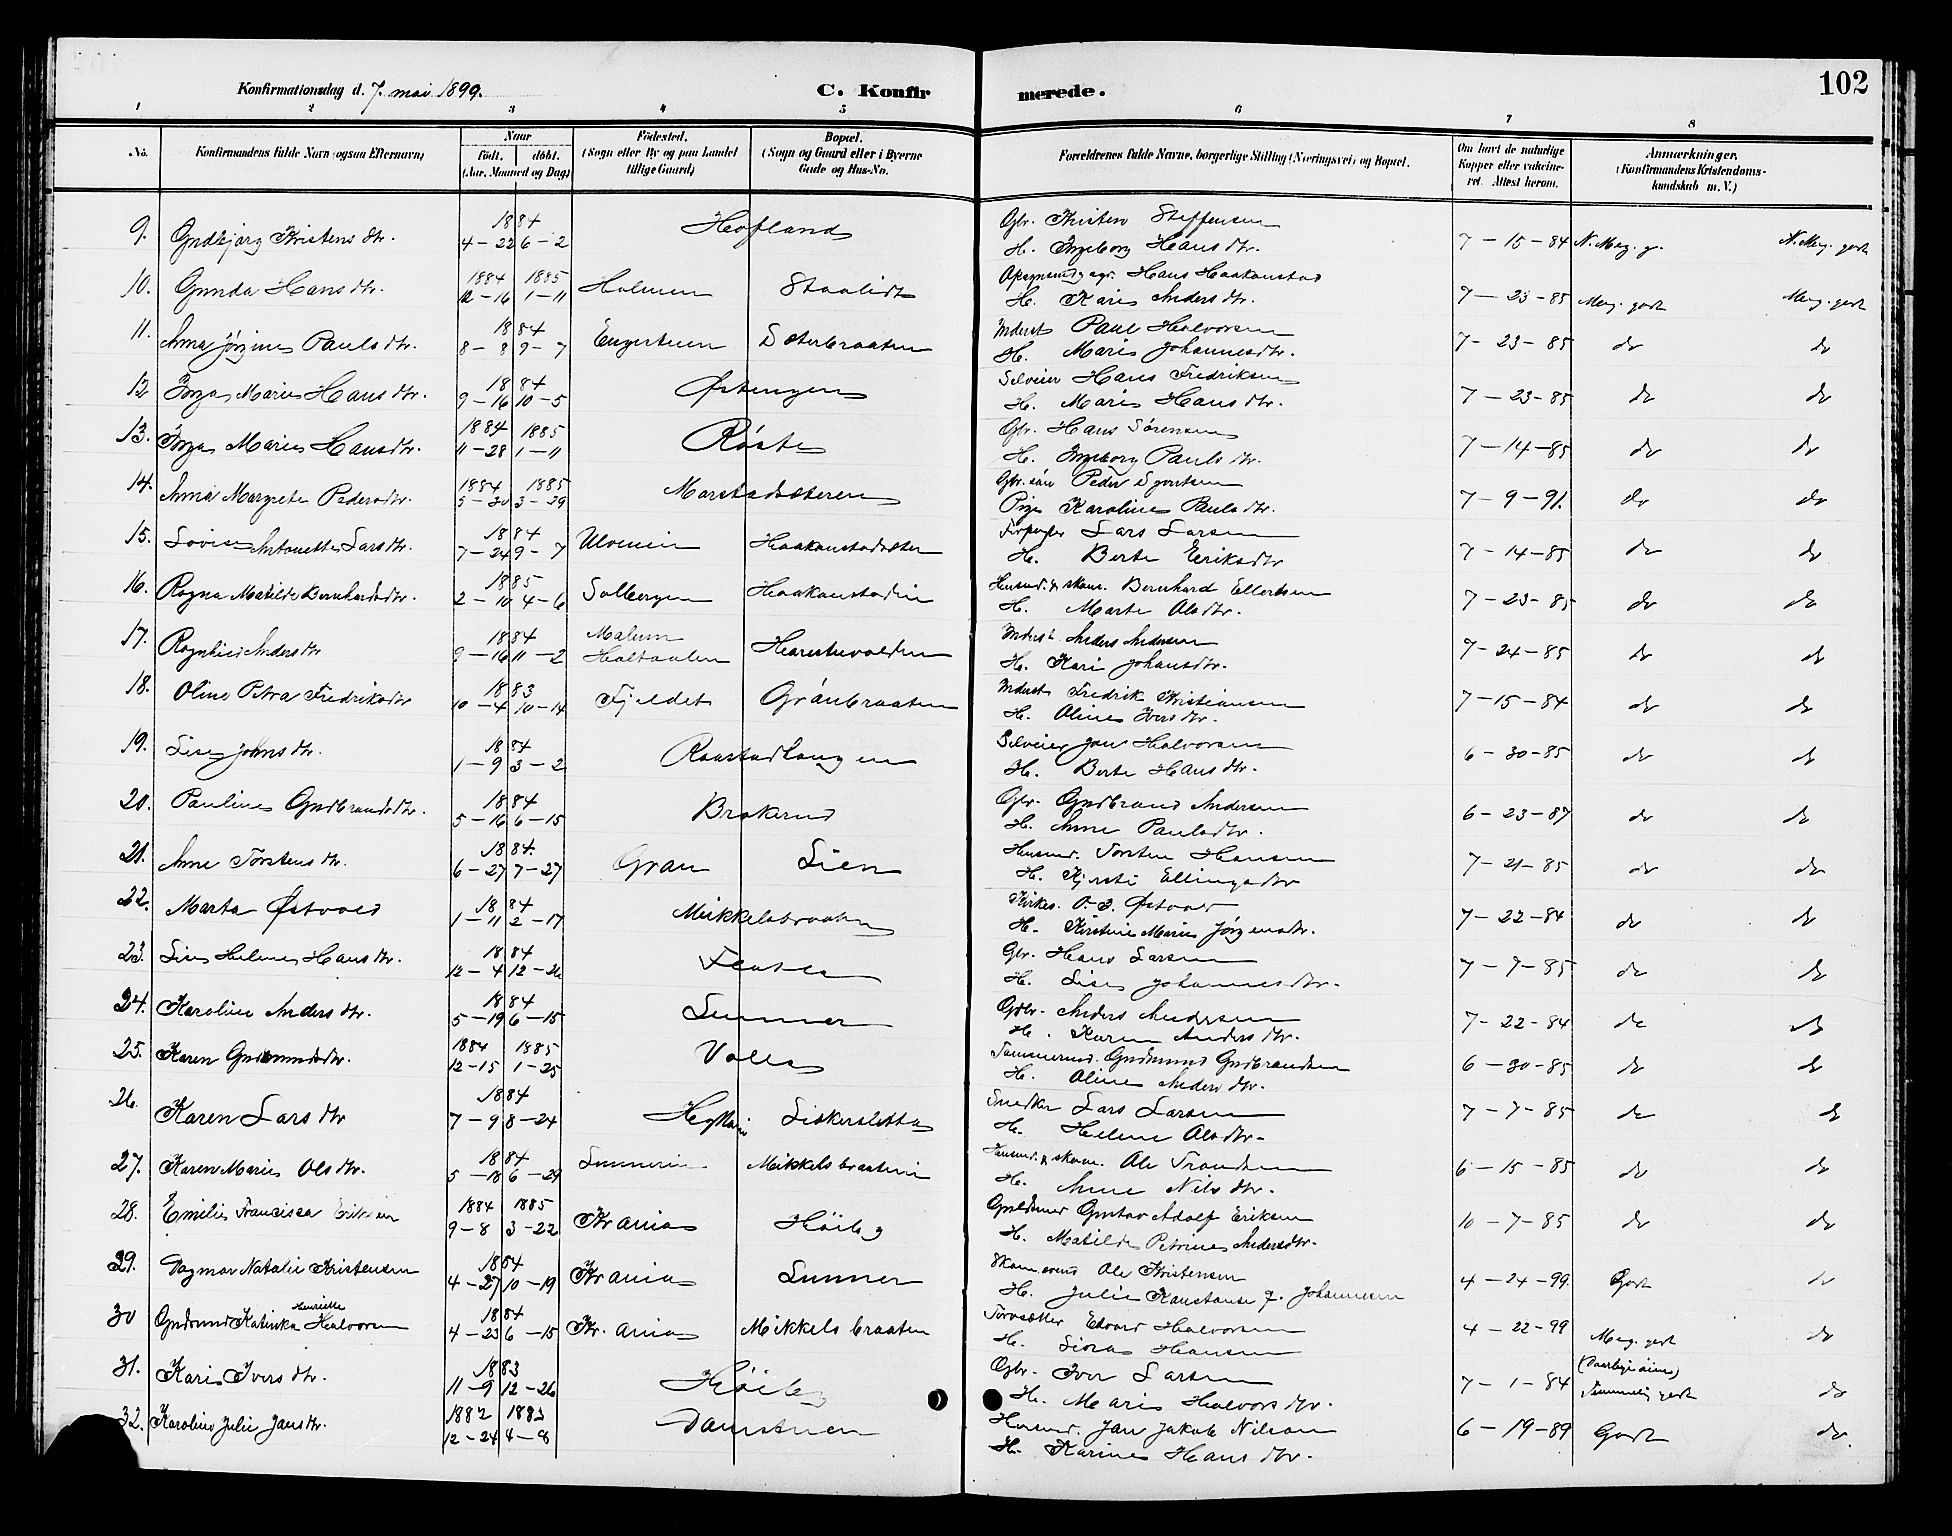 Konfirmationsdag d. 7. mai 1899. C. Konfir merede. 102
1 2 3 4 5 6 7 8
No. Konfirmandens fulde Navn (ogsaa Efternavn) Naar Födested. Bopæl. Forældrenes fulde Navne, borgerlige Stilling (Næringsvei) og Bopæl. Om havt de naturlige Anmærkninger.
födt. döbt. (Sogn eller By og paa Landet (Sogn og Gaard eller i Byerne Kopper eller vakcine- (Konfirmandens Kristendoms-
(Aar, Maaned og Dag) tillige Gaard) Gade og Hus-No. ret. Attest herom. kundskab m. V.)
9. Gudbjørg Kristensdtr. 1884 4-22 6-2 Hofland Gbr. Kristen Steffensen
H. Ingeborg Hansdtr. 7-15-84 N. Meg. g. N. Meg. godt
10. Gunda Hansdtr. 1884 12-16 1885 1-11 Holmen Staalidt Hans Haakonstad
H. Kari Andersdtr. 7-23-85 Meg. godt Meg. godt
11. Anna Jørgine Paulsdtr. 1884 8-8 9-7 Engestuen Sæterbraaten Inderst Paul Halvorsen
H. Marie Johannesdtr. 7-23-85 do do
12 Inga Marie Hansdtr. 1884 9-16 10-5 Østengen Selveier Hans Fredriksen
H. Marie Hansdtr. 7-23-85 do do
13. Inga Marie Hansdtr. 1884 11-28 1885 1-11 Røste Gbr. Hans Sørensen
H. Ingeborg Paulsdtr. 7-14-85 do do
14. Anna Margrete Pedersdtr. 1884 5-30 1885 3-29 Morstadsæteren Gbr. søn Peder Syvertsen
Pige Karoline Paulsdtr. 7-9-91. do do
15. Lovise Antonette Larsdtr. 1884 7-24 9-7 Ulveien Haakonstadsæter Forpagter Lars Larsen
H. Berte Eriksdtr 7-14-85 do do
16. Ragna Matilde Bernhardsdtr. 1885 2-10 4-6 Solbergen Haakonstadeie Husmd. & skom. Bernhard Ellertsen
H. Marte Olsdtr. 7-23-85 do do
17. Ragnhild Andersdtr 1884 9-16 11-2 Malum Haltaalen Harestuvolden Inderst Anders Andersen
H. Kari Johansdtr. 7-24-85 do do
18. Oline Petra Fredriksdtr 1883 10-4 10-14 Fjeldet Grønbraaten Inderst Fredrik Kristiansen
H. Oline Iversdtr. 7-15-84 do do
19. Lise Johnsdtr. 1884 1-9 3-2 Raastadhaugen Selveier Jon Halvorsen
H. Berte Hansdtr. 6-30-85 do do
20. Pauline Gudbrandsdtr. 1884 5-16 6-15 Brokerud Gbr. Gudbrand Andersen
H. Anne Paulsdtr. 6-23-87 do do
21. Anne Torstensdtr. 1884. 6-27 7-27 Gran Lien Husmd. Torsten Hansen
H. Kjersti Ellingsdtr 7-21-85 do do
22. Marta Østvold 1884 1-11 2-17 Mikkelsbraaten Kirkes. O. J. Østvold
H. Kirstine Marie Jørgensdtr. 7-22-84 do do
23. Lise Helene Hansdtr. 1884 12-4 12-26 Flatla Gbr. Hans Larsen
H. Lise Johannesdtr. 7-7-85 do do
24. Karoline Andersdtr. 1884 5-19 6-15 Lunner Gbr. Anders Andersen
H. Karen Andersdtr. 7-22-84 do do
25. Karen Gudmundsdtr. 1884 12-15 1885 1-25 Volla Tømmermd. Gudmund Gudbrandsen
H. Oline Andersdtr. 6-30-85 do do
26. Karen Larsdtr 1884 7-9 8-24 Liskersletta Snedker Lars Larsen
H. Helene Olsdtr. 7-7-85 do do
27. Karen Marie Olsdtr. 1884 5-18 6-29 Lunnereie Mikkelsbraateneie Husmd. & skom. Ole Trondsen
H. Anne Nilsdtr. 6-15-85 do do
28. Emilie Francisca Eriksen 1884 9-8 1885 3-22 Kr.ania Høiby Guldsmed Gustav Adolf Eriksen
H. Matilde Petrine Andersdtr. 10-7-85 do do
29. Dagmar Natalie Kristensen 1884 4-27 10-19 Kr.ania Lunner Skom.svend Ole Kristensen
H. Julie Konstanse f. Johannesen 4-24-99 Godt do
30 Gudrund Katinka Henriette Halvorsen 1884 4-23 6-15 Kr.ania Mikkelsbraaten Edvard Halvorsen
H. Hansen 4-22-99 Meg. godt do
31. Kari Iversdtr. 1883 11-9 12-26 Høiby Gbr. Iver Larsen
H. Marie Halvorsdtr. 7-1-84 (Daarlige øine) Temmelig godt do
32. Karoline Julie Jansdtr. 1882 12-24 1883 4-8 Damstuen Husmd. Jan Jakob Nilsen
H. Karine Hansdtr. 6-19-89 Godt do.